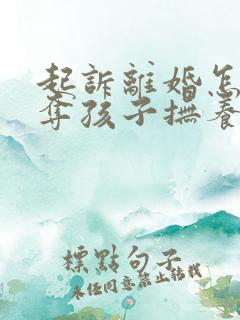 起訴離婚怎
奪孩子撫養
標點句子
未經同意禁止轉載